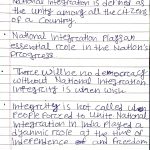 National Integration is defined as
the unity among all the citizens
of a Country.
National Integration Plays an
essential role in the Nation's
progress
There will be no democracy
without National Integration
Integrity is when
Integrity is not called upon
People Forced to Unite National
Integration in India Played a
dynamic role at the time of
Independence and Freedom